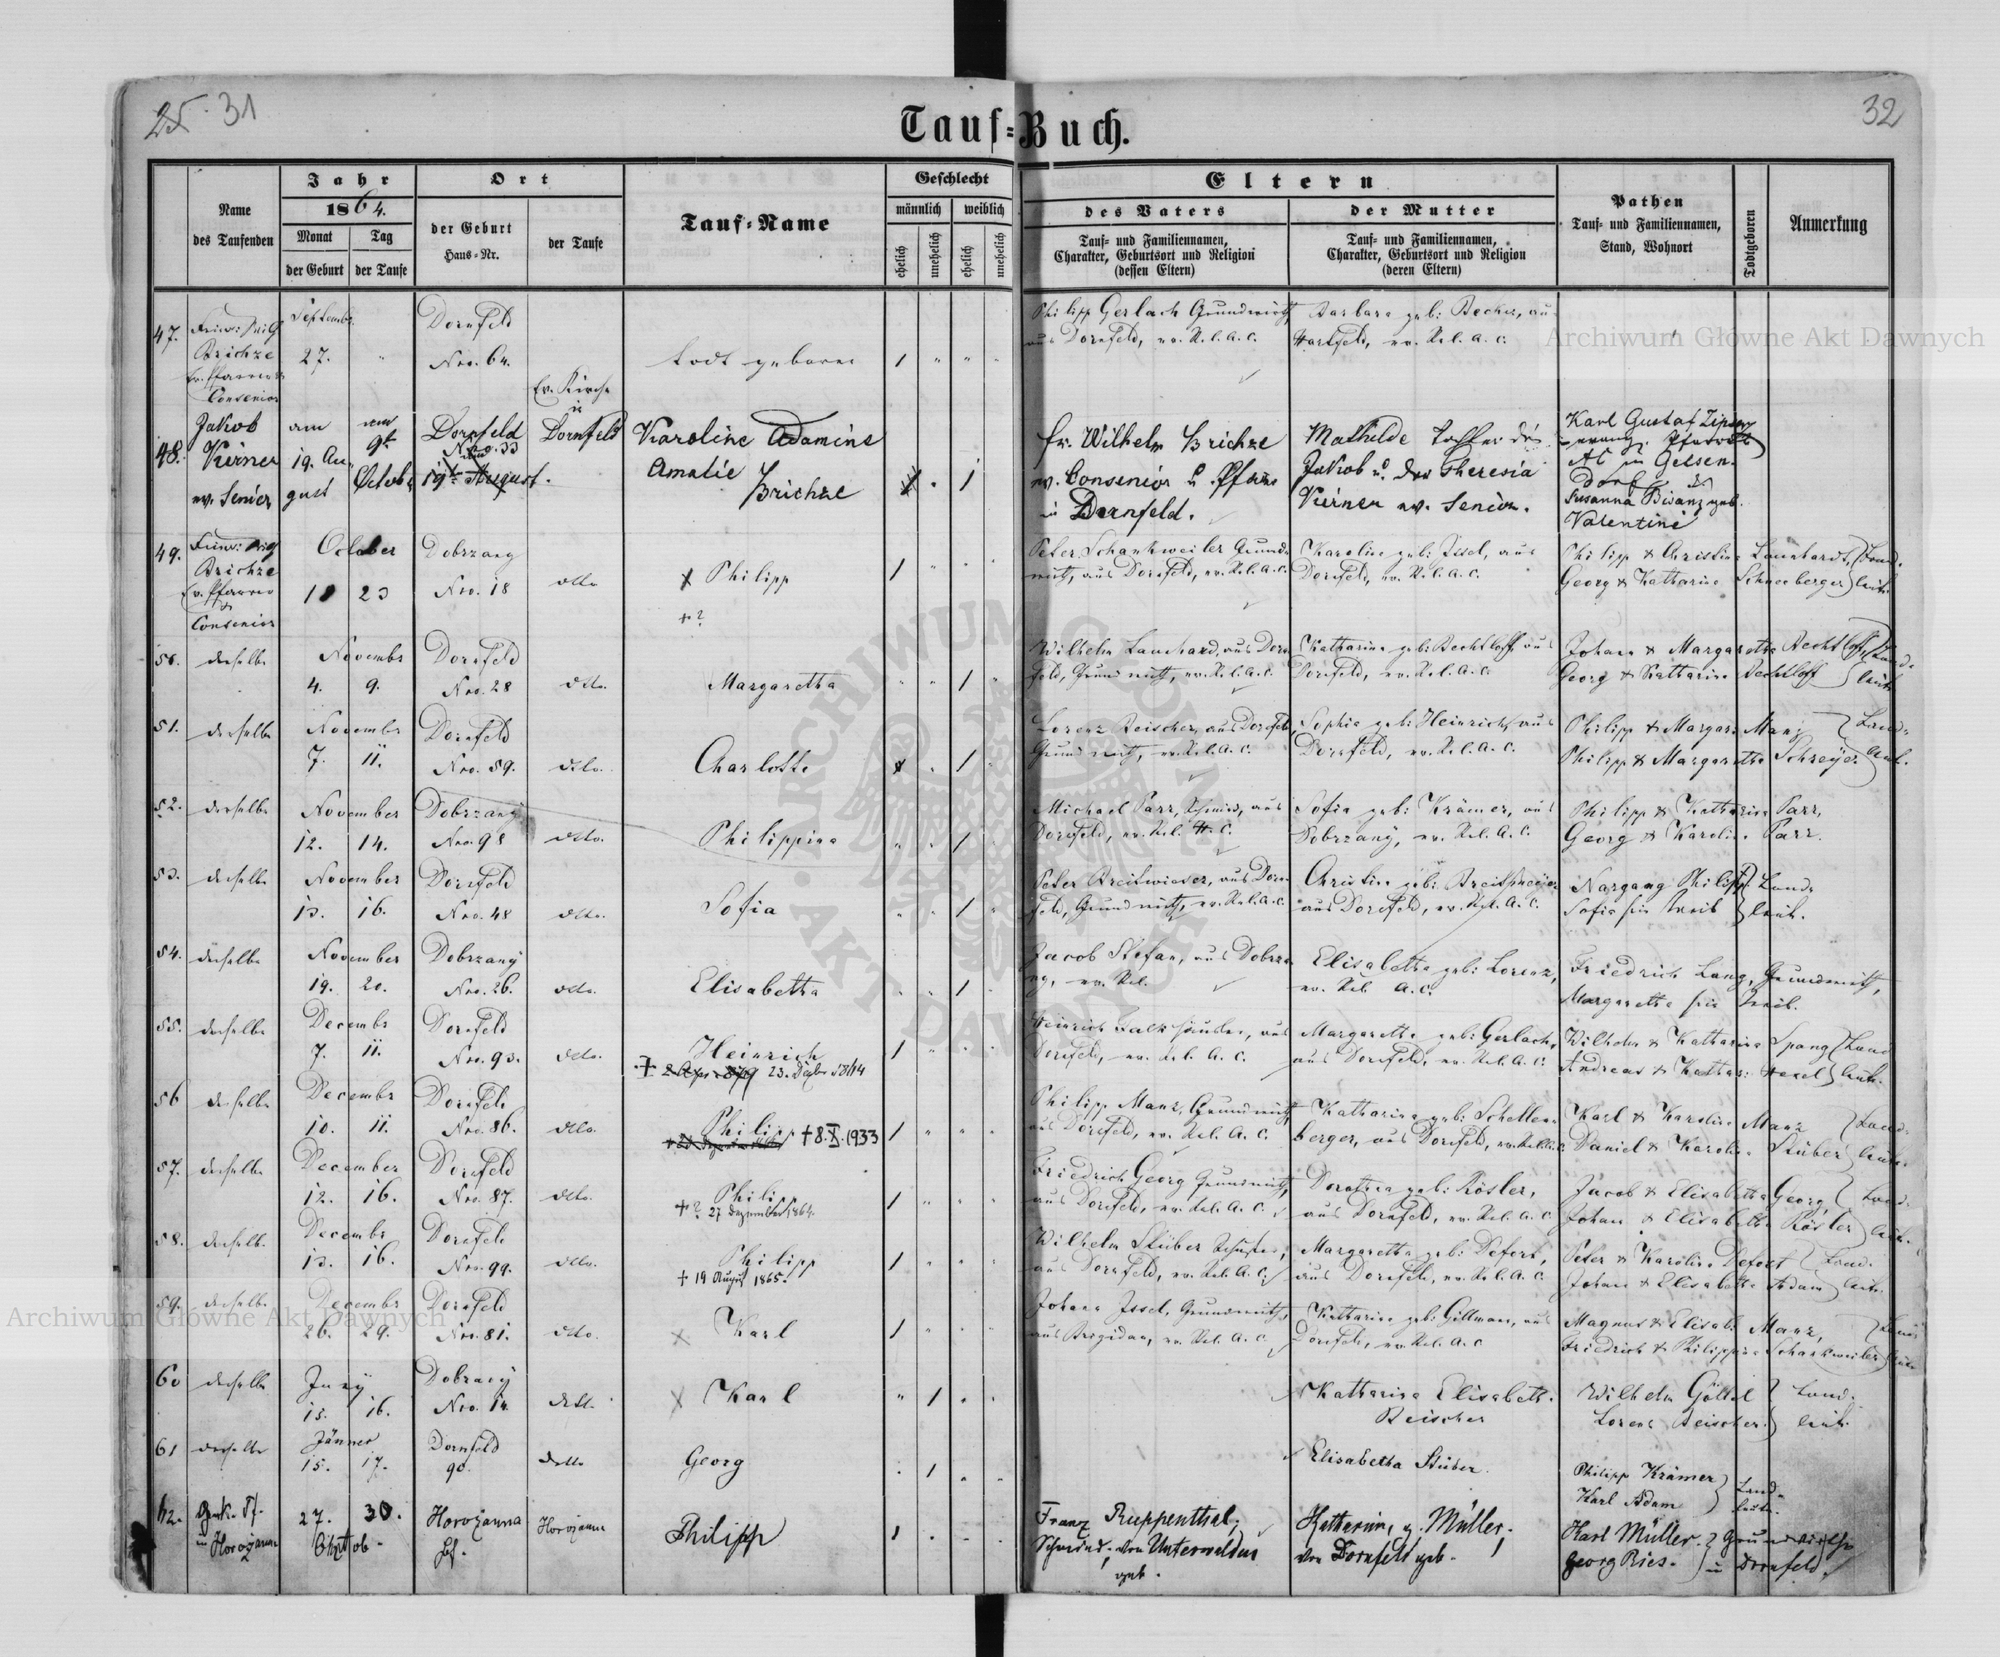 25. 31
32
Tauf-Buch.
Name
des Taufenden
Jahr
1864.
Monat
Tag
der Geburt
der Taufe
Ort
der Geburt
Haus-Nr.
der Taufe
Tauf-Name
Geschlecht
männlich
weiblich
ehelich
unehelich
ehelich
unehelich
Eltern
des Vaters
Tauf- und Familiennamen,
Charakter, Geburtsort und Religion
(dessen Eltern)
der Mutter
Tauf- und Familiennamen,
Charakter, Geburtsort und Religion
(deren Eltern)
Pathen
Tauf- und Familiennamen,
Stand, Wohnort
Todtgeboren
Anmerkung
47.
Brichze
Ev. Pfarrer &
Consenior
September
27. "
Dornfeld
Nro. 64.
todt geboren
1 " " "
Philipp Gerlach Grundwirth
aus Dornfeld, ev. Rel. A. C.
Barbara geb. Becher, aus
Hartfeld, ev. Rel. A. C.
48.
Jakob
Kerner
ev. Senior
am
19. Au-
gust
am
9t
Octob.
Dornfeld
Nro. 33
19t August.
Ev. Kirche
in
Dornfeld
Karoline Adamine
Amalie
Brichze
Fr. Wilhelm Brichze
ev. Consenior u. Pfarrer
in Dornfeld.
Mathilde Tochter des
Jakob u. der Theresia
Kerner ev. Senior.
Karl Gustaf Zipser
evang. Pfarrer
AC in Gelsen-
dorf &
Susanna Bisanz geb.
Valentini
49.
Brichze
Ev. Pfarrer
&
Consenior
October
18 23
Dobrzany
Nro. 18
dtto
x Philipp
+ ?
1
Peter Schankweiler Grund-
wirth, aus Dornfeld, ev. Rel. A. C.
Karoline geb. Issel, aus
Dornfeld, ev. Rel. A. C.
Philipp & Christine Launhardt, Land-
Georg & Katharina Schneeberger leute
50. derselbe
November
4. 9.
Dornfeld
Nro. 28
dtto.
Margaretha
" " 1 "
Wilhelm Launhard, aus Dorn-
feld, Grundwirth, ev. Rel. A. C.
Katharina geb. Bechtloff aus
Dornfeld, ev. Rel. A. C.
Johann & Margaretha Bechtloff Land-
Georg & Katharina Bechtloff leute
51. derselbe
November
7. 11.
Dornfeld
Nro. 59.
dtto.
Charlotte
Lorenz Reischer, aus Dornfeld,
Grundwirth, ev. Rel. A. C.
Sophia geb. Heinrich, aus
Dornfeld, ev. Rel. A. C.
Philipp & Margar. Manz Land-
Philipp & Margaretha Schreyer leute.
52. derselbe
November
12. 14.
Dobrzany
Nro. 98
dtto.
Philippina
Michael Parr, Schmied, aus
Dornfeld, ev. Rel. H. C.
Sofia geb. Krämer, aus
Dobrzany, ev. Rel. A. C.
Philipp & Katharina Parr,
Georg & Karolin. Parr.
53. derselbe
November
13. 16.
Dornfeld
Nro. 48
dtto.
Sofia
Peter Breitwieser, aus Dorn-
feld, Grundwirth, ev. Rel. A. C.
aus Dornfeld, ev. Rel. A. C.
Nargang Philipp Land-
Sofia sein Weib leute.
54. derselbe
November
19. 20.
Dobrzany
Nro. 26.
dtto.
Elisabetha
Jacob Stefan, aus Dobrza-
ny, ev. Rel.
Elisabetha geb. Lorenz,
ev. Rel. A. C.
Friedrich Lang, Grundwirth,
Margaretha sein Weib.
55. derselbe
Decembr
7. 11.
Dornfeld
Nro. 93.
dtto.
Heinrich
Dornfeld, ev. Rel. A. C.
Margaretha geb. Gerlach,
aus Dornfeld, ev. Rel. A. C.
Wilhelm & Katharina Spang Land-
Andreas & Kathar. Hexel leute.
56 derselbe
Decembr
10. 11.
Dornfeld
Nro. 86.
dtto.
Philipp + 8. X. 1933
1 " " "
Philipp Manz, Grundwirth
aus Dornfeld, ev. Rel. A. C.
Katharina geb. Schellen-
berger, aus Dornfeld, ev. Rel. A. C.
Karl & Karoline Manz Land-
Daniel & Karolin. Stüber leute.
57. derselbe
December
12. 16.
Dornfeld
Nro. 87.
dtto.
Philipp
+ ? 27 Dezember 1864.
Friedrich Georg Grundwirth,
aus Dornfeld, ev. Rel. A. C.
Dorothea geb. Rösler,
aus Dornfeld, ev. Rel. A. C.
Jacob & Elisabetha Georg Land-
Johan & Elisabetha Rösler leute.
58. derselbe
Decembr
13. 16.
Dornfeld
Nro. 99.
dtto.
Philipp
+ 19 August 1865.
Wilhelm Stüber Schuster,
aus Dornfeld, ev. Rel. A. C.
Margaretha geb. Defort,
aus Dornfeld, ev. Rel. A. C.
Peter & Karoline Defort Land-
Johan & Elisabetha Adam leute.
59. derselbe
Decembr
26. 29.
Dornfeld
Nro. 81.
dtto.
x Karl
Johann Issel, Grundwirth,
ev. Rel. A. C.
Katharina geb. Gillmann, aus
Dornfeld, ev. Rel. A. C.
Magnus & Elisab. Manz, Land-
Friedrich & Philippina Schankweiler leute
60 derselbe
Juny
15. 16.
Dobrzany
Nro. 14
dtto.
x Karl
" 1 " "
Katharina Elisabeth.
Reischer
Wilhelm Göttel Land-
Lorenz Reischer leute.
61 derselbe
Jänner
15. 17.
Dornfeld
90.
dtto
Georg
Elisabetha Stüber.
Philipp Krämer Land-
Karl Adam leute.
62.
in Horozanna
27. 30.
Oktob.
Horozanna
Horozanna
Philipp
Franz Ruppenthal,
Schmied, von Unterwalden
geb.
Katharina, g. Müller,
von Dornfeld geb.
Karl Müller. Grundwirthe
Georg Ries. in Dornfeld.
Archiwum Główne Akt Dawnych
Archiwum Główne Akt Dawnych
ARCHIWUM GŁÓWNE · AKT DAWNYCH ·